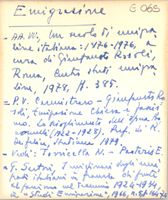 Emigrazione
E 065
- AA.VV., Un secolo di emigra
zione italiana: 1876-1976, a
cura di Gianfausto Rosoli,
Roma, Centro studi emigra
zione, 1978, pp. 385.
- P.V. Cannistraro - Gianfausto Ro
soli, Emigrazione Chiesa e fasci
smo. Lo scioglimento dell'Opera Bo
nomelli (1922-1928),
italiana, 1979
- Vedi:
- E. Sartori, L'emigrazione degli ume
italiani in Francia di fronti
al fascismo nel 1921-1924
in "Studi Emigrazione",